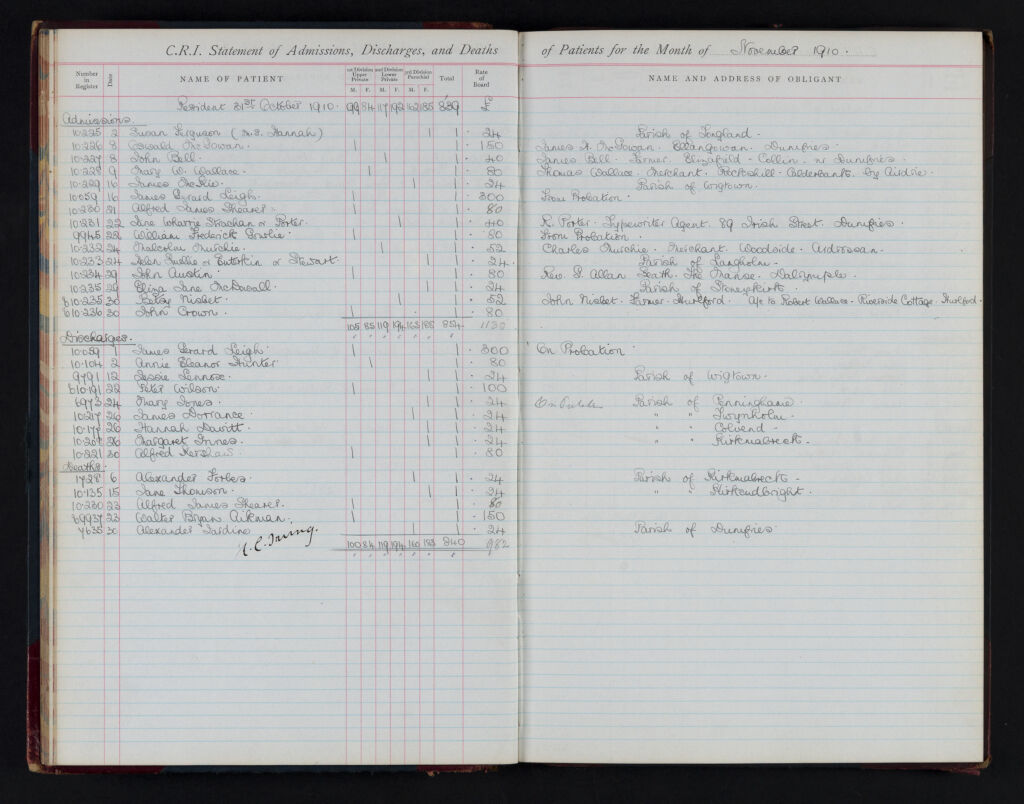 C.R.I. Statement of Admissions, Discharges, and Deaths of Patients for the Month of November 1910.
Number in Register Date NAME OF PATIENT 1st Division Upper Private M. F. 2nd Division Lower Private M. F. 3rd Division Parochial M. F. Total Rate of Board NAME AND ADDRESS OF OBLIGANT
Resident 31st October 1910. 99 84 117 192 162 185 839 £
Admissions.
10.225 2 Susan Ferguson (M.S. Hannah) 1 1 24 Parish of
10.226 8 Oswald McGowan. 1 1 150 James A. McGowan. Ellangowan. Dumfries.
10.227 8 John Bell. 1 1 40 James Bell. Farmer. Collin. nr Dumfries.
10.228 9 Mary W. Wallace. 1 1 80 Thomas Wallace. Merchant. Rochshill. Calderbank. by Airdrie.
10.229 16 James McKie. 1 1 24 Parish of Wigtown.
10.059 16 James Gerard Leigh. 1 1 300 From Probation.
10.230 21 Alfred James Shearer. 1 1 80
10.231 22 Jane Wharrie Strachan or Porter. 1 1 40 R. Porter. Typewriter Agent. 89 Irish Street. Dumfries
9945 23 William Frederick 1 1 50 From Probation.
10.232 24 Malcolm Murchie. 1 1 52 Charles Murchie. Merchant. Woodside. Ardrossan.
10.233 24 Helen or or Stewart. 1 1 24 Parish of Langholm.
10.234 29 John Austin. 1 1 80 Rev. Allan The Manse. Dalrymple.
10.235 29 Eliza Jane McDowall. 1 1 24 Parish of Stoneykirk.
b10.235 30 Betsy Nisbet. 1 1 52 John Nisbet. Farmer. Hurlford. A/c to Robert Wallace. Riverside Cottage. Hurlford.
b10.236 30 John Crown. 1 1 80
105 85 119 194 165 186 854 1130
Discharges.
10.059 1 James Gerard Leigh. 1 1 300 On Probation.
10.104 2 Annie Eleanor Hunter 1 1 80
9791 12 Jessie Lennox. 1 1 24 Parish of Wigtown.
b10.191 22 Peter Wilson. 1 1 100
6973 24 Mary Jones. 1 1 24 Parish of Penninghame.
10.217 26 James Dorrance. 1 1 24 " " Twynholm.
10.17 26 Hannah Davitt. 1 1 24 " " Colvend.
10.20 26 Margaret Innes. 1 1 24 " " Kirkmabreck.
10.221 30 Alfred Kershaw. 1 1 80
Deaths.
1728 6 Alexander Forbes. 1 1 24 Parish of Kirkmabreck.
10.135 15 Jane Thomson. 1 1 24 " " Kirkcudbright.
10.230 23 Alfred James Shearer. 1 1 80
b9937 23 Walter Bryan Aikman. 1 1 150
7635 30 Alexander Jardine 1 1 24 Parish of Dumfries.
H. C. Irving. 100 84 119 194 160 183 840 982